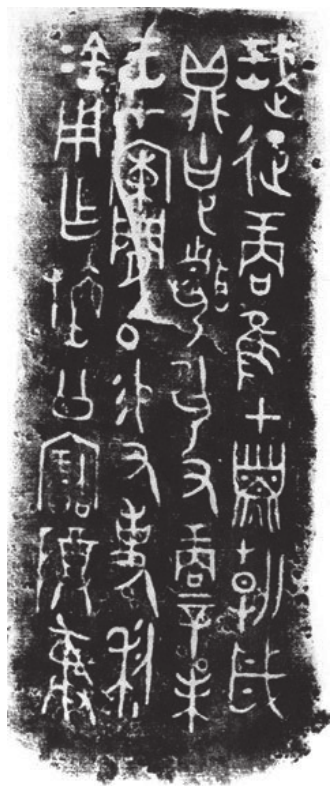 珷征商隹甲子朝歲
鼎克昏夙又商辛未
王才闌𠂤易又事利
金用乍旜公寶尊彝